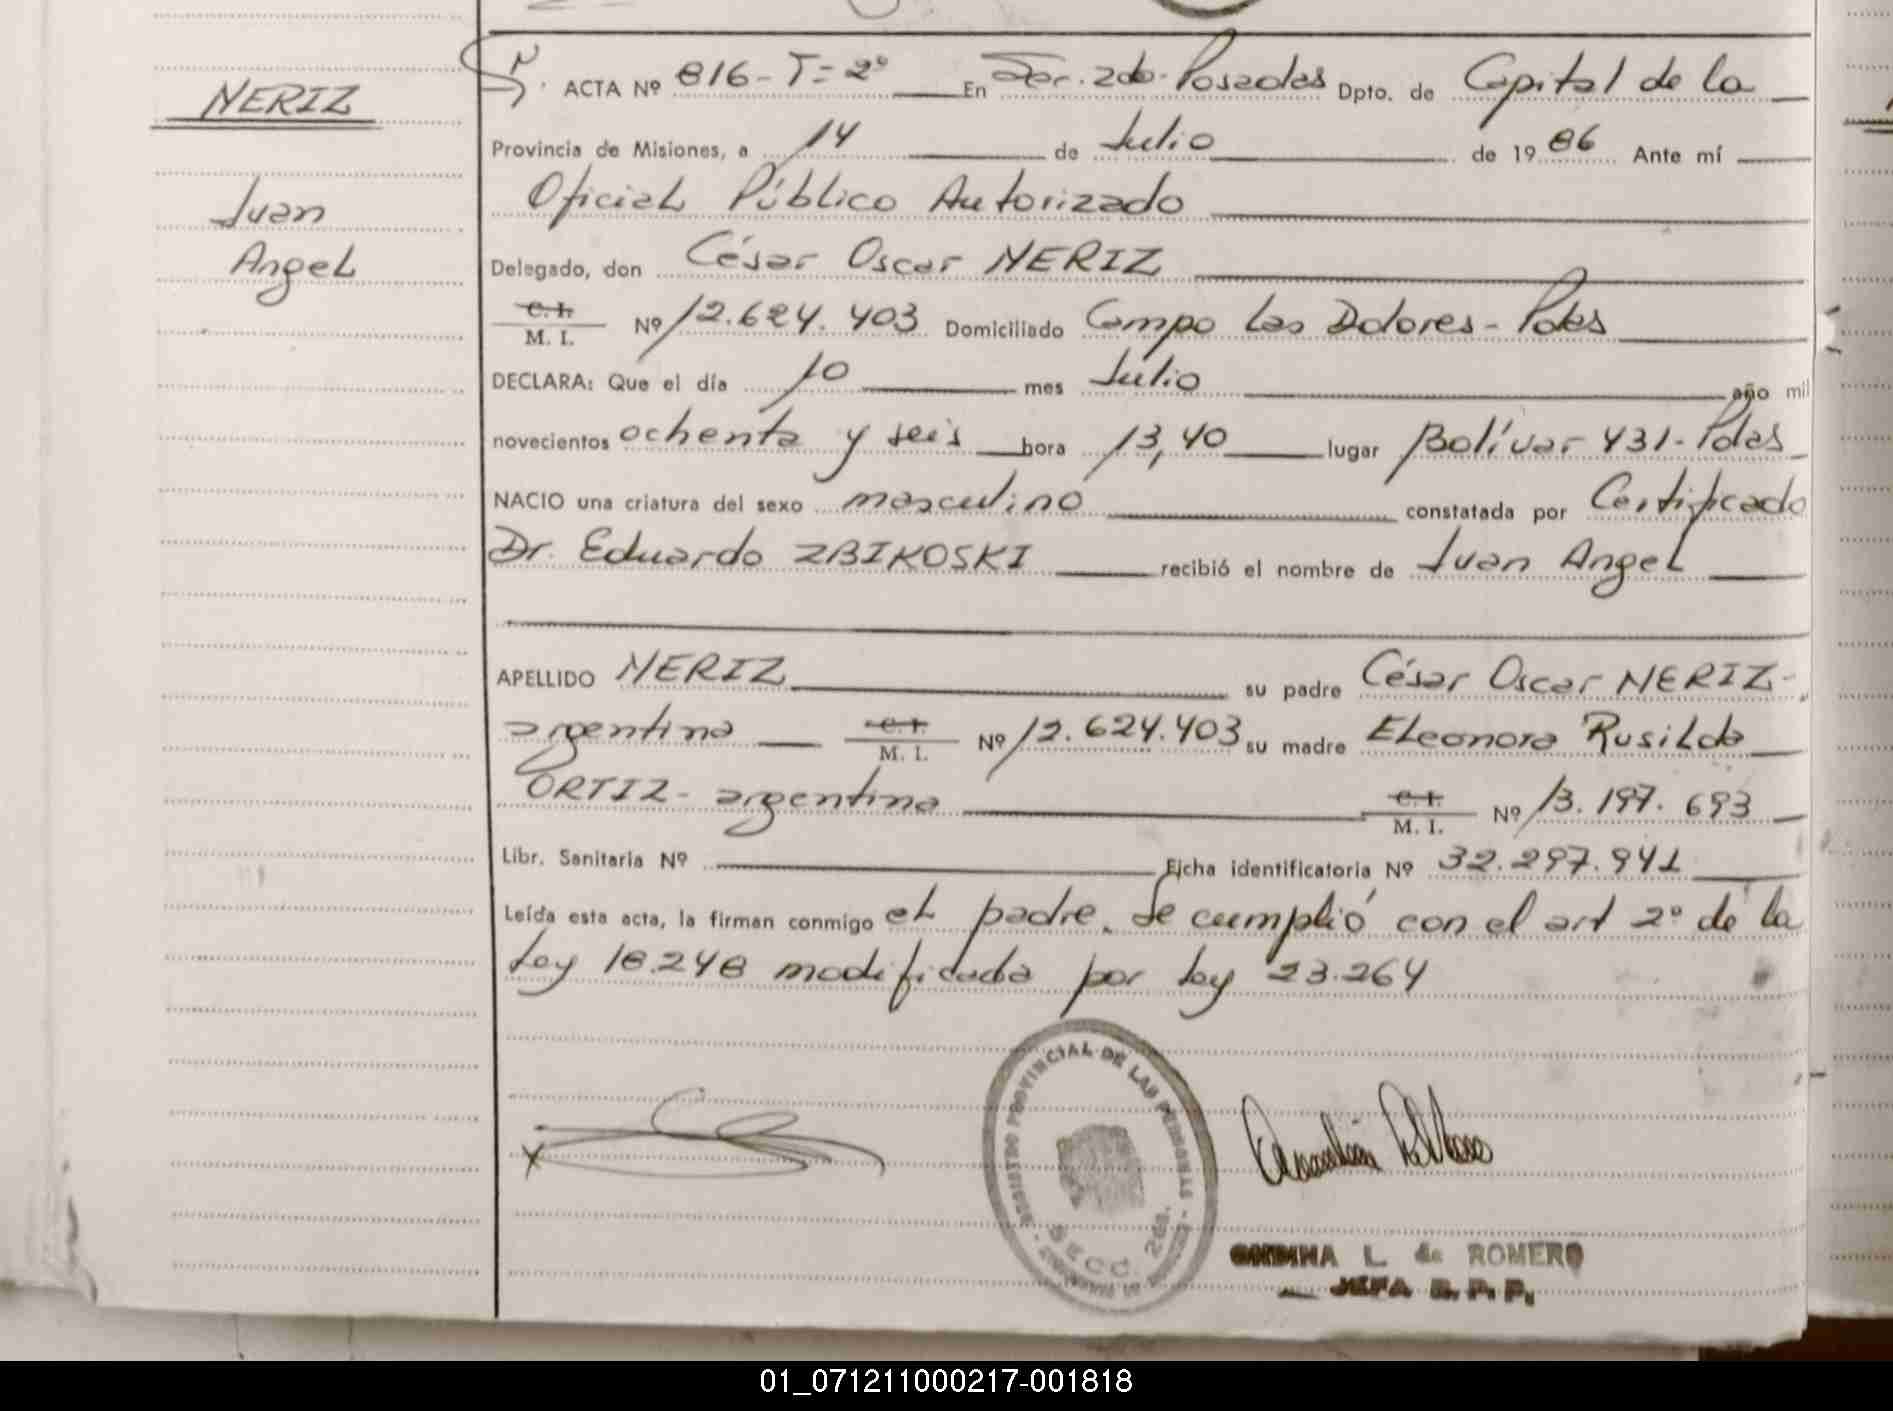 NERIZ
Juan
Angel
ACTA Nº 816-T=2º En Sec. 2do-Posadas Dpto. de Capital de la
Provincia de Misiones, a 14 de Julio de 1986 Ante mí
Oficial Público Autorizado
Delegado, don César Oscar NERIZ
C.I.
M. I. Nº 12.624.403 Domiciliado Campo Las Dolores-Pdas
DECLARA: Que el día 10 mes Julio año mil
novecientos ochenta y seis hora 13,40 lugar Bolívar 431-Pdas
NACIO una criatura del sexo masculino constatada por Certificado
Dr. Eduardo ZBIKOSKI recibió el nombre de Juan Angel
APELLIDO NERIZ su padre César Oscar NERIZ-
argentina C.I. M. I. Nº 12.624.403 su madre Eleonora Rusilda
ORTIZ- argentina C.I. M. I. Nº 13.197.693
Libr. Sanitaria Nº Ficha identificatoria Nº 32.297.941
Leída esta acta, la firman conmigo el padre. Se cumplió con el art 2º de la
Ley 18.248 modificada por ley 23.264
REGISTRO PROVINCIAL DE LAS PERSONAS
SECC. 2da.
L. de ROMERO
JEFA R. P. P.
01_071211000217-001818